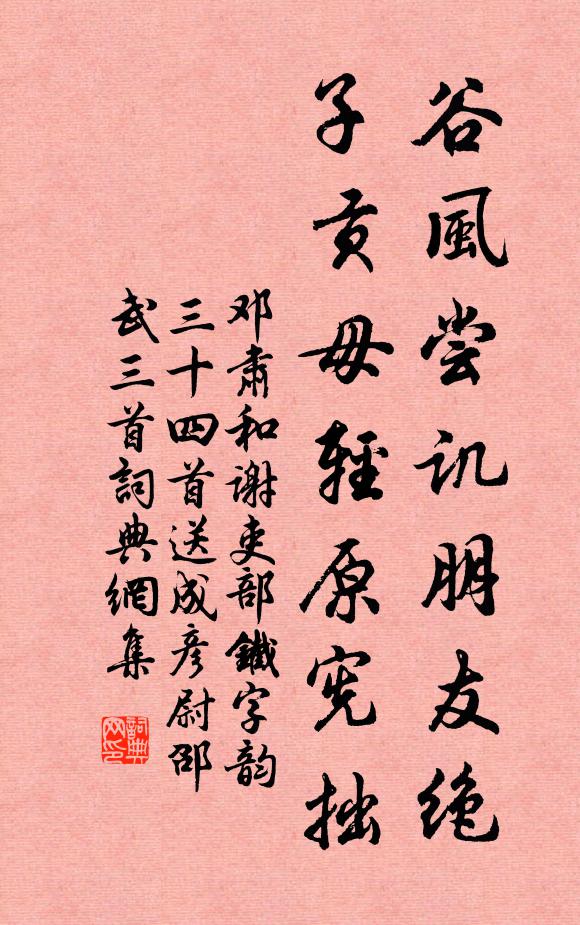 谷風尝讥朋友绝
子贡毋輕原宪拙
邓肃和谢吏部鐵字韵
三十四首送成彦尉邵
武三首詞典網集
詞典网印